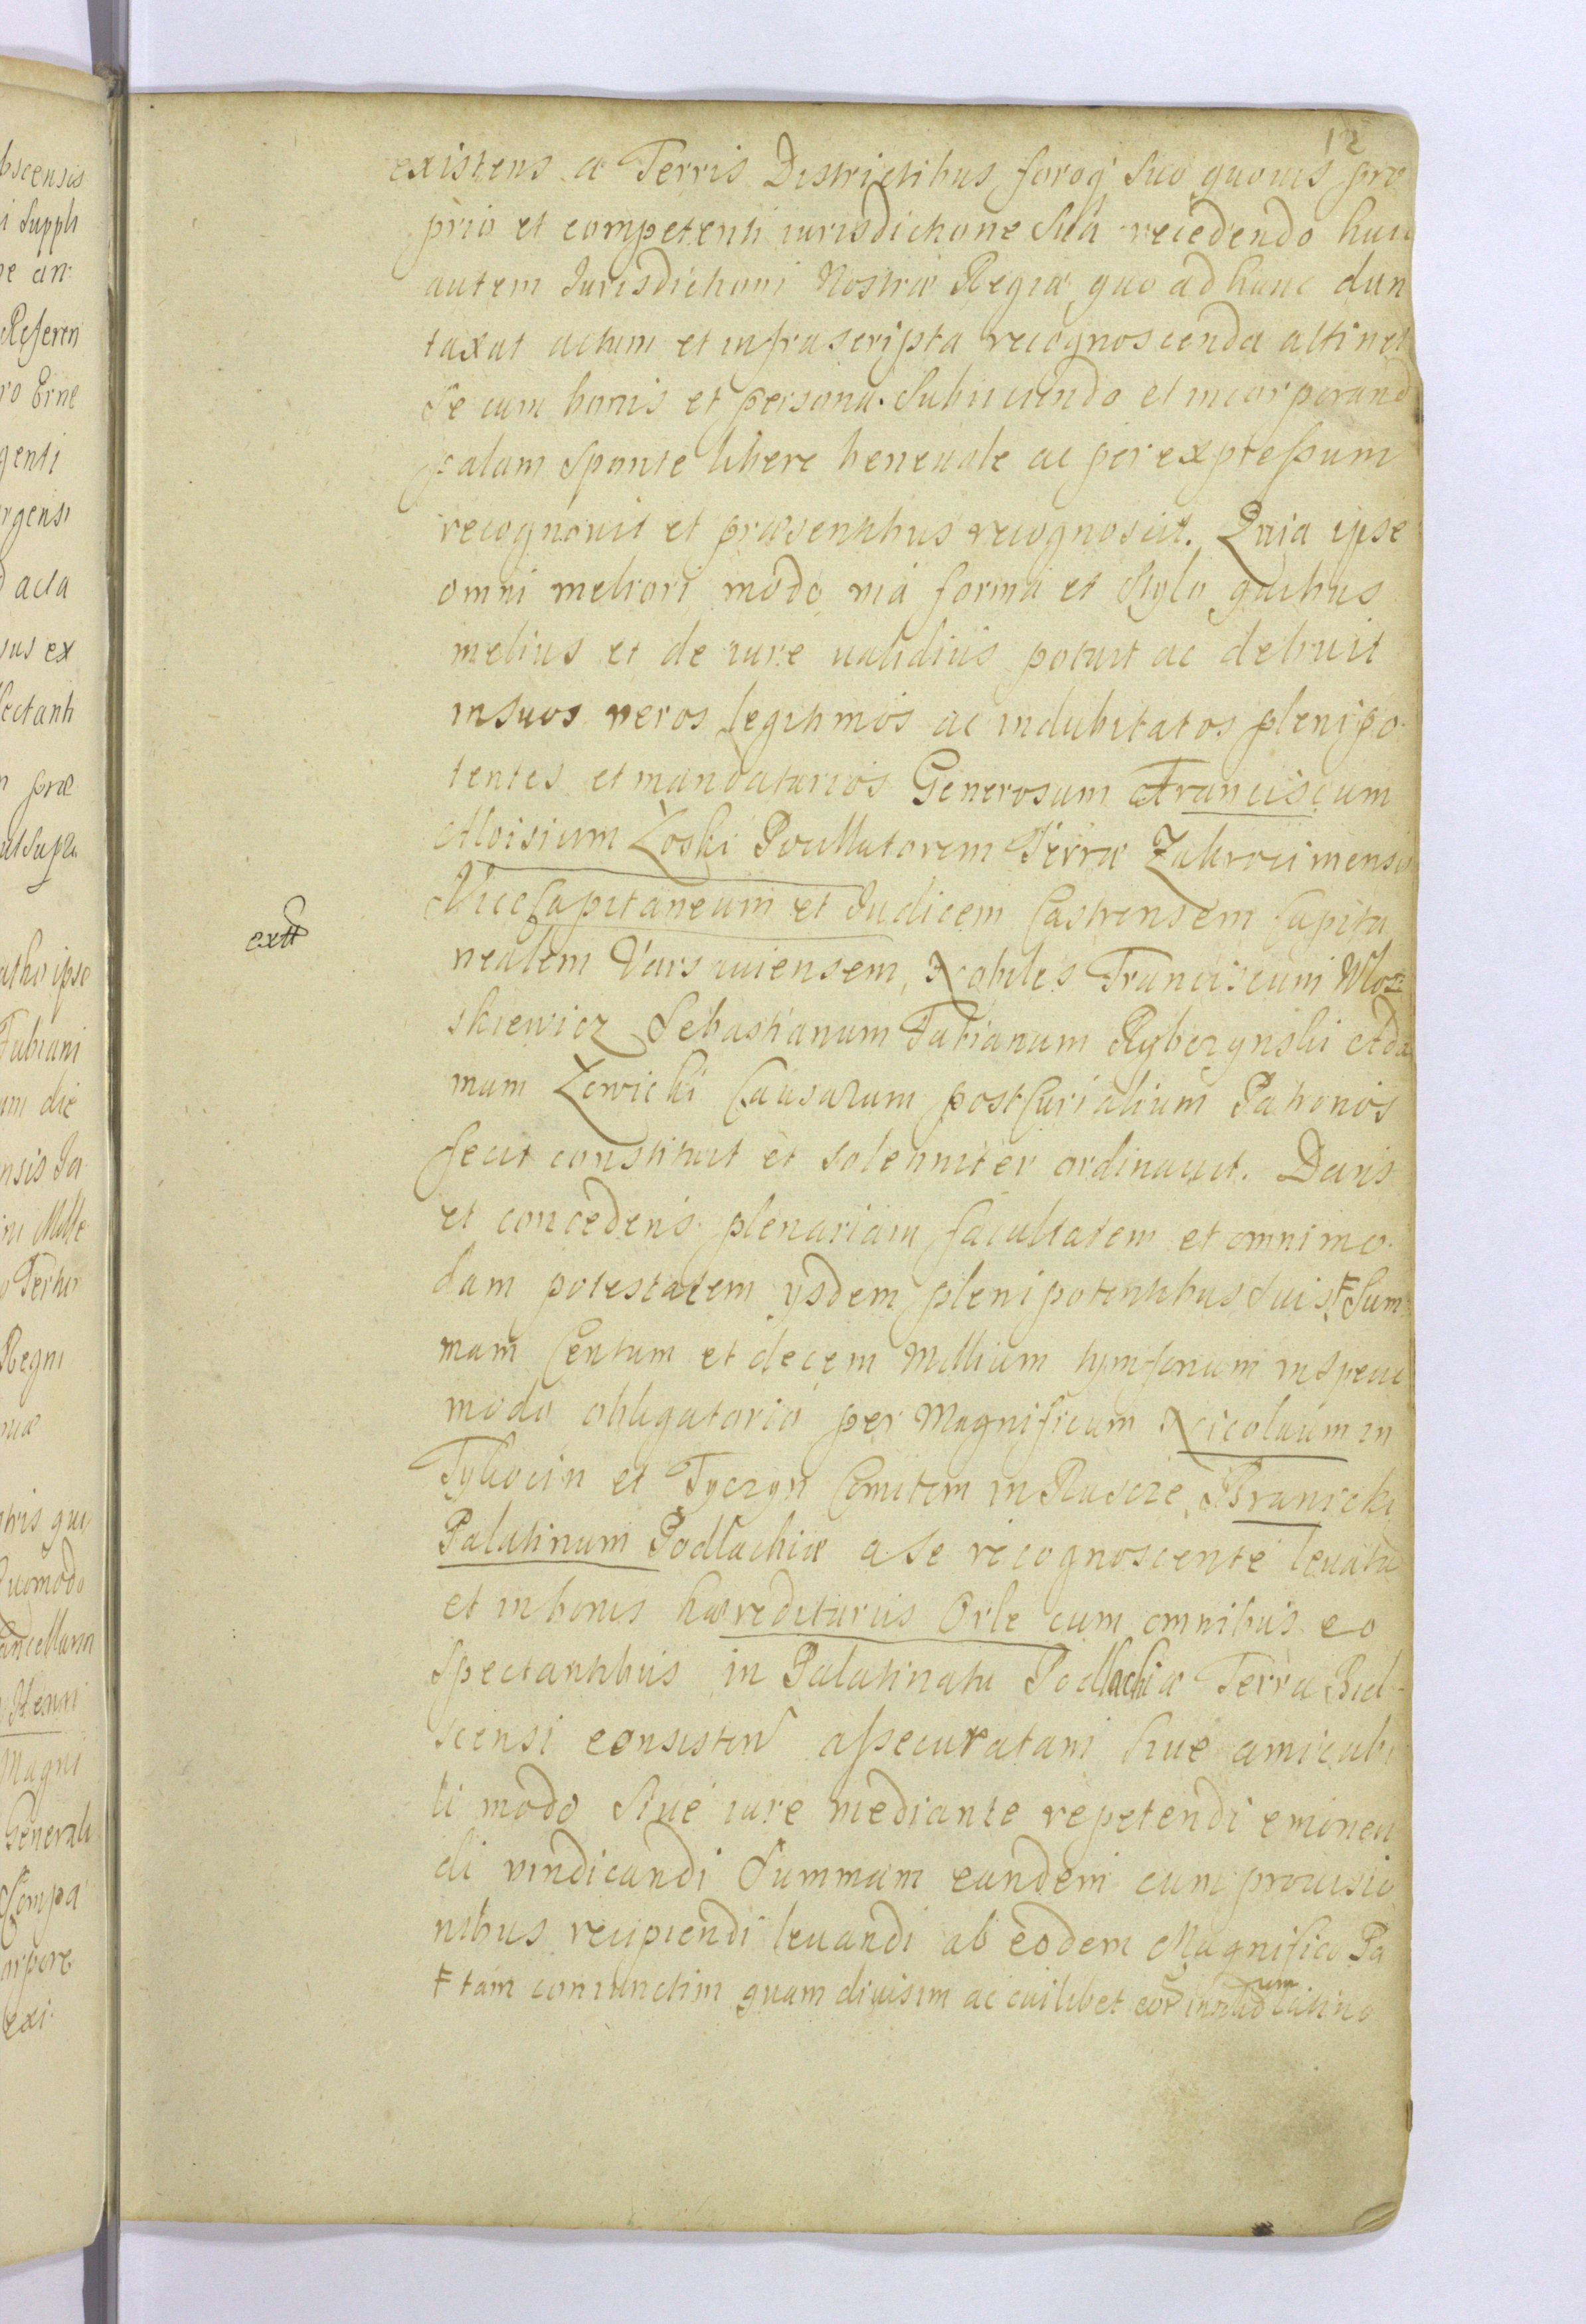 12
existens a Terris Districtibus foroq suo quouis pro
prio et competenti iurisdictione sua recedendo huic
autem Jurisdictioni Nostræ Regiæ quo ad hunc dun
taxat actum et infrascripta recognoscenda attinet
Se cum bonis et persona subiiciendo et incorporand
palam sponte libere beneuole ac per expressum
recognouit et præsentibus recognoscit. Quia ipse
omni meliori modo uiá formá et stylo quibus
melius et de iure ualidius potuit ac debuit
in suos veros legitimos ac indubitatos plenipo
tentes et mandatarios Generosum Franciscum
Aloisium Łoski Pocillatorem Terræ Zakrocimensis
ViceCapitaneum et Judicem Castrensem Capita
nealem Varsauiensem, Nobiles Franciscum Wlosz
skiewicz Sebastianum Fabianum Rybczynski Ada
mum Łowicki Causarum postCurialium Patronos
fecit constituit et solenniter ordinauit. Dans
et concedens plenariam facultatem et omnimo
dam potestatem ijsdem plenipotentibus suis Ŧ Sum
mam Centum et decem Millium tymforum in specie
modo obligatorio per Magnificum Nicolaum in
Tykocin et Tyczyn Comitem in Ruscze Branicki
Palatinum Podlachiæ a se recognoscente leuatá
et in bonis hæreditariis Orle cum omnibus eo
spectantibus in Palatinatu Podlachiæ Terra Biel
scensi consisten assecuratam siue amicabi
li modo siue iure mediante repetendi emonen
di vindicandi Summam eandem cum prouisio
nibus recipiendi leuandi ab eodem Magnifico Pa
Ŧ tam coniunctim quam diuisim ac cuilibet eor insolid um latino
extt